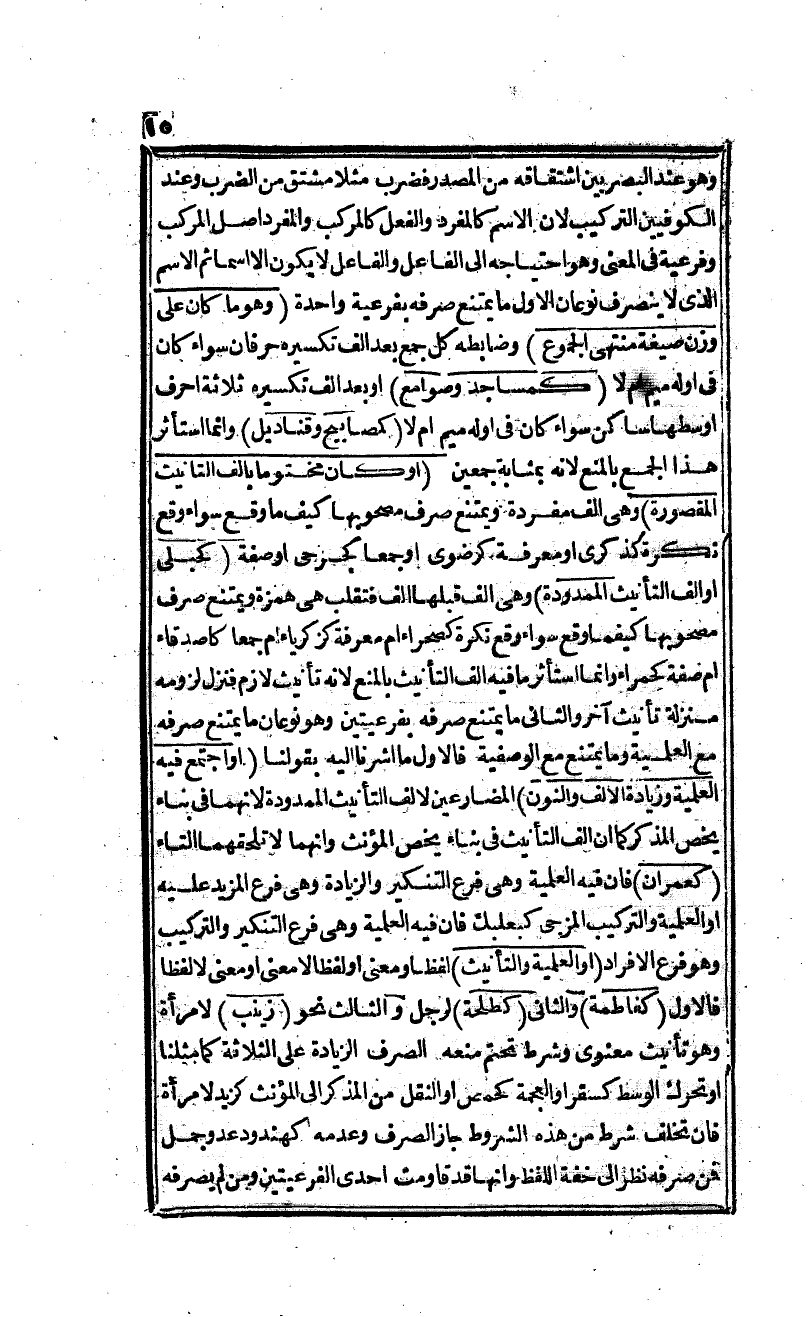 ١٥
وهو عند البصريين اشتقاقه من المصدر فضرب مثلا مشتق من الضرب وعند
الكوفيين التركيب لان الاسم كالمفرد والفعل كالمركب والمفرد اصل المركب
وفرعية فى المعنى وهو احتياجه الى الفاعل والفاعل لا يكون الا اسما ثم الاسم
الذى لا ينصرف نوعان الاول ما يمتنع صرفه بفرعية واحدة (وهو ما كان على
وزن صيغة منتهى الجموع) وضابطه كل جمع بعد الف تكسيره حرفان سواء كان
فى اوله ميم ام لا (كمساجد وصوامع) او بعد الف تكسيره ثلاثة احرف
اوسطها ساكن سواء كان فى اوله ميم ام لا (كمصابيح وقناديل) وانما استأثر
هذا الجمع بالمنع لانه بمثابة جمعين (او كان مختوما بالف التانيث
المقصورة) وهى الف مفردة ويمتنع صرف مصحوبها كيف ما وقع سواء وقع
نكرة كذكرى او معرفة كرضوى او جمعا كجرحى او صفة (كحبلى
او الف التأنيث الممدودة) وهى الف قبلها الف فتقلب هى همزة ويمتنع صرف
مصحوبها كيفما وقع سواء وقع نكرة كصحراء ام معرفة كزكرياء ام جمعا كاصدقاء
ام صفة كحمراء وانما استأثر ما فيه الف التأنيث بالمنع لانه تأنيث لازم فنزل لزومه
منزلة تأنيث آخر والثانى ما يمتنع صرفه بفرعيتين وهو نوعان ما يمتنع صرفه
مع العلمية وما يمتنع مع الوصفية فالاول ما اشرنا اليه بقولنا (او اجتمع فيه
العلمية وزيادة الالف والنون) المضارعين لالف التأنيث الممدودة لانهما فى بناء
يخص المذكر كما ان الف التأنيث فى بناء يخص المؤنث وانهما لا تلحقهما التاء
(كعمران) فان فيه العلمية وهى فرع التنكير والزيادة وهى فرع المزيد عليه
او العلمية والتركيب المزجى كبعلبك فان فيه العلمية وهى فرع التنكير والتركيب
وهو فرع الافراد (او العلمية والتأنيث) لفظا ومعنى او لفظا لا معنى او معنى لا لفظا
فالاول (كفاطمة) والثانى (كطلحة) لرجل والثالث نحو (زينب) لامرأة
وهو تأنيث معنوى وشرط تحتم منعه الصرف الزيادة على الثلاثة كما مثلنا
او تحرك الوسط كسقر او العجمة كحمص او النقل من المذكر الى المؤنث كزيد لامرأة
فان تخلف شرط من هذه الشروط جاز الصرف وعدمه كهند ودعد وجمل
فمن صرفه نظر الى خفة اللفظ وانها قد قاومت احدى الفرعيتين ومن لم يصرفه